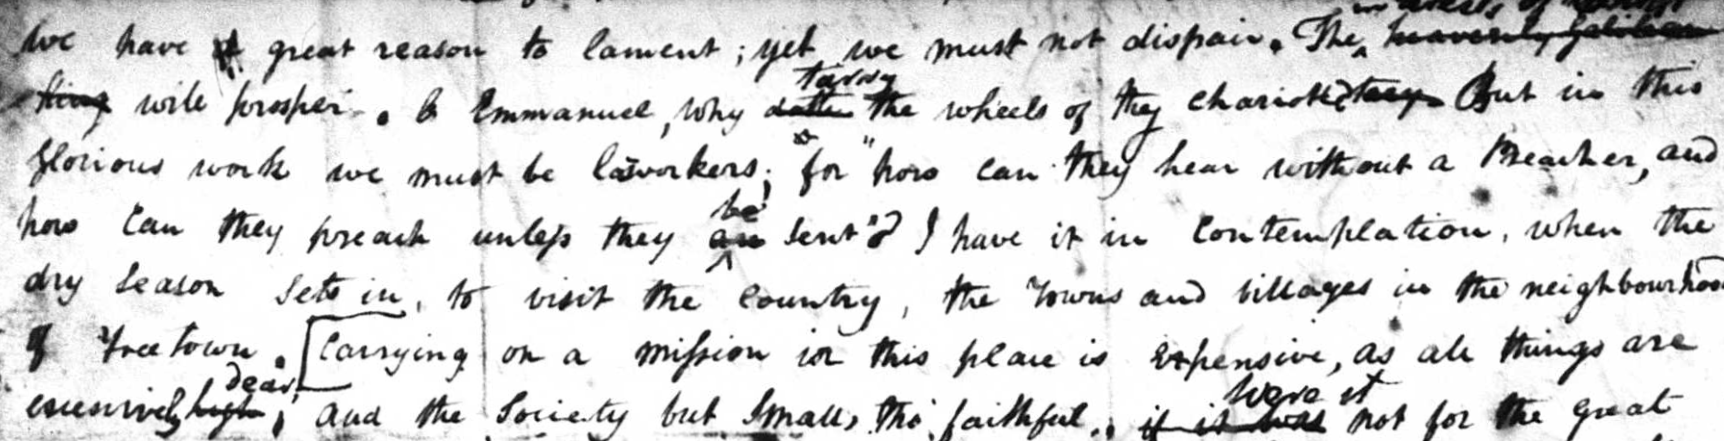 we have great reason to lament; yet we must not dispair. The ^ heavenly Galilean
King will prosper. O Emmanuel, why tarry the wheels of thy chariot? But in this
glorious work we must be co-workers; for "how can they hear without a Preacher, and
how can they preach unless they be sent"? I have it in contemplation, when the
dry season sets in, to visit the country, the Towns and villages in the neighbourhood
of Freetown. [Carrying on a mission in this place is expensive, as all things are
excessively high dear; and the Society but small, tho' faithful., if it was were it not for the great